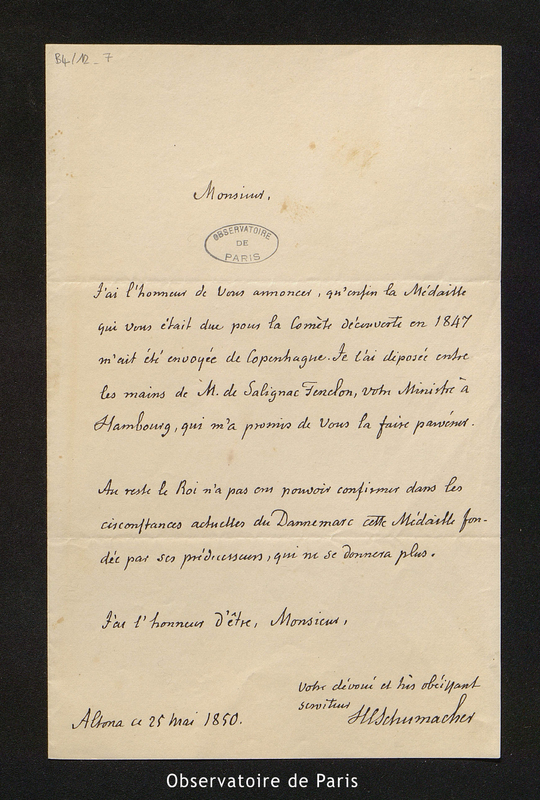 B4/12-7
Monsieur,
OBSERVATOIRE
DE
PARIS
J'ai l'honneur de Vous annoncer, qu'enfin la Médaille
qui vous était due pour la Comète découverte en 1847
m'ait été envoyée de Copenhague. Je l'ai déposée entre
les mains de M. de Salignac Fenelon, votre Ministre à
Hambourg, qui m'a promis de Vous la faire parvenir.
Au reste le Roi n'a pas cru pouvoir confirmer dans les
circonstances actuelles du Dannemarc cette Médaille fon-
dée par ses prédecesseurs, qui ne se donnera plus.
J'ai l'honneur d'être, Monsieur,
votre dévoué et très obéissant
serviteur
HCSchumacher
Altona ce 25 Mai 1850.
Observatoire de Paris